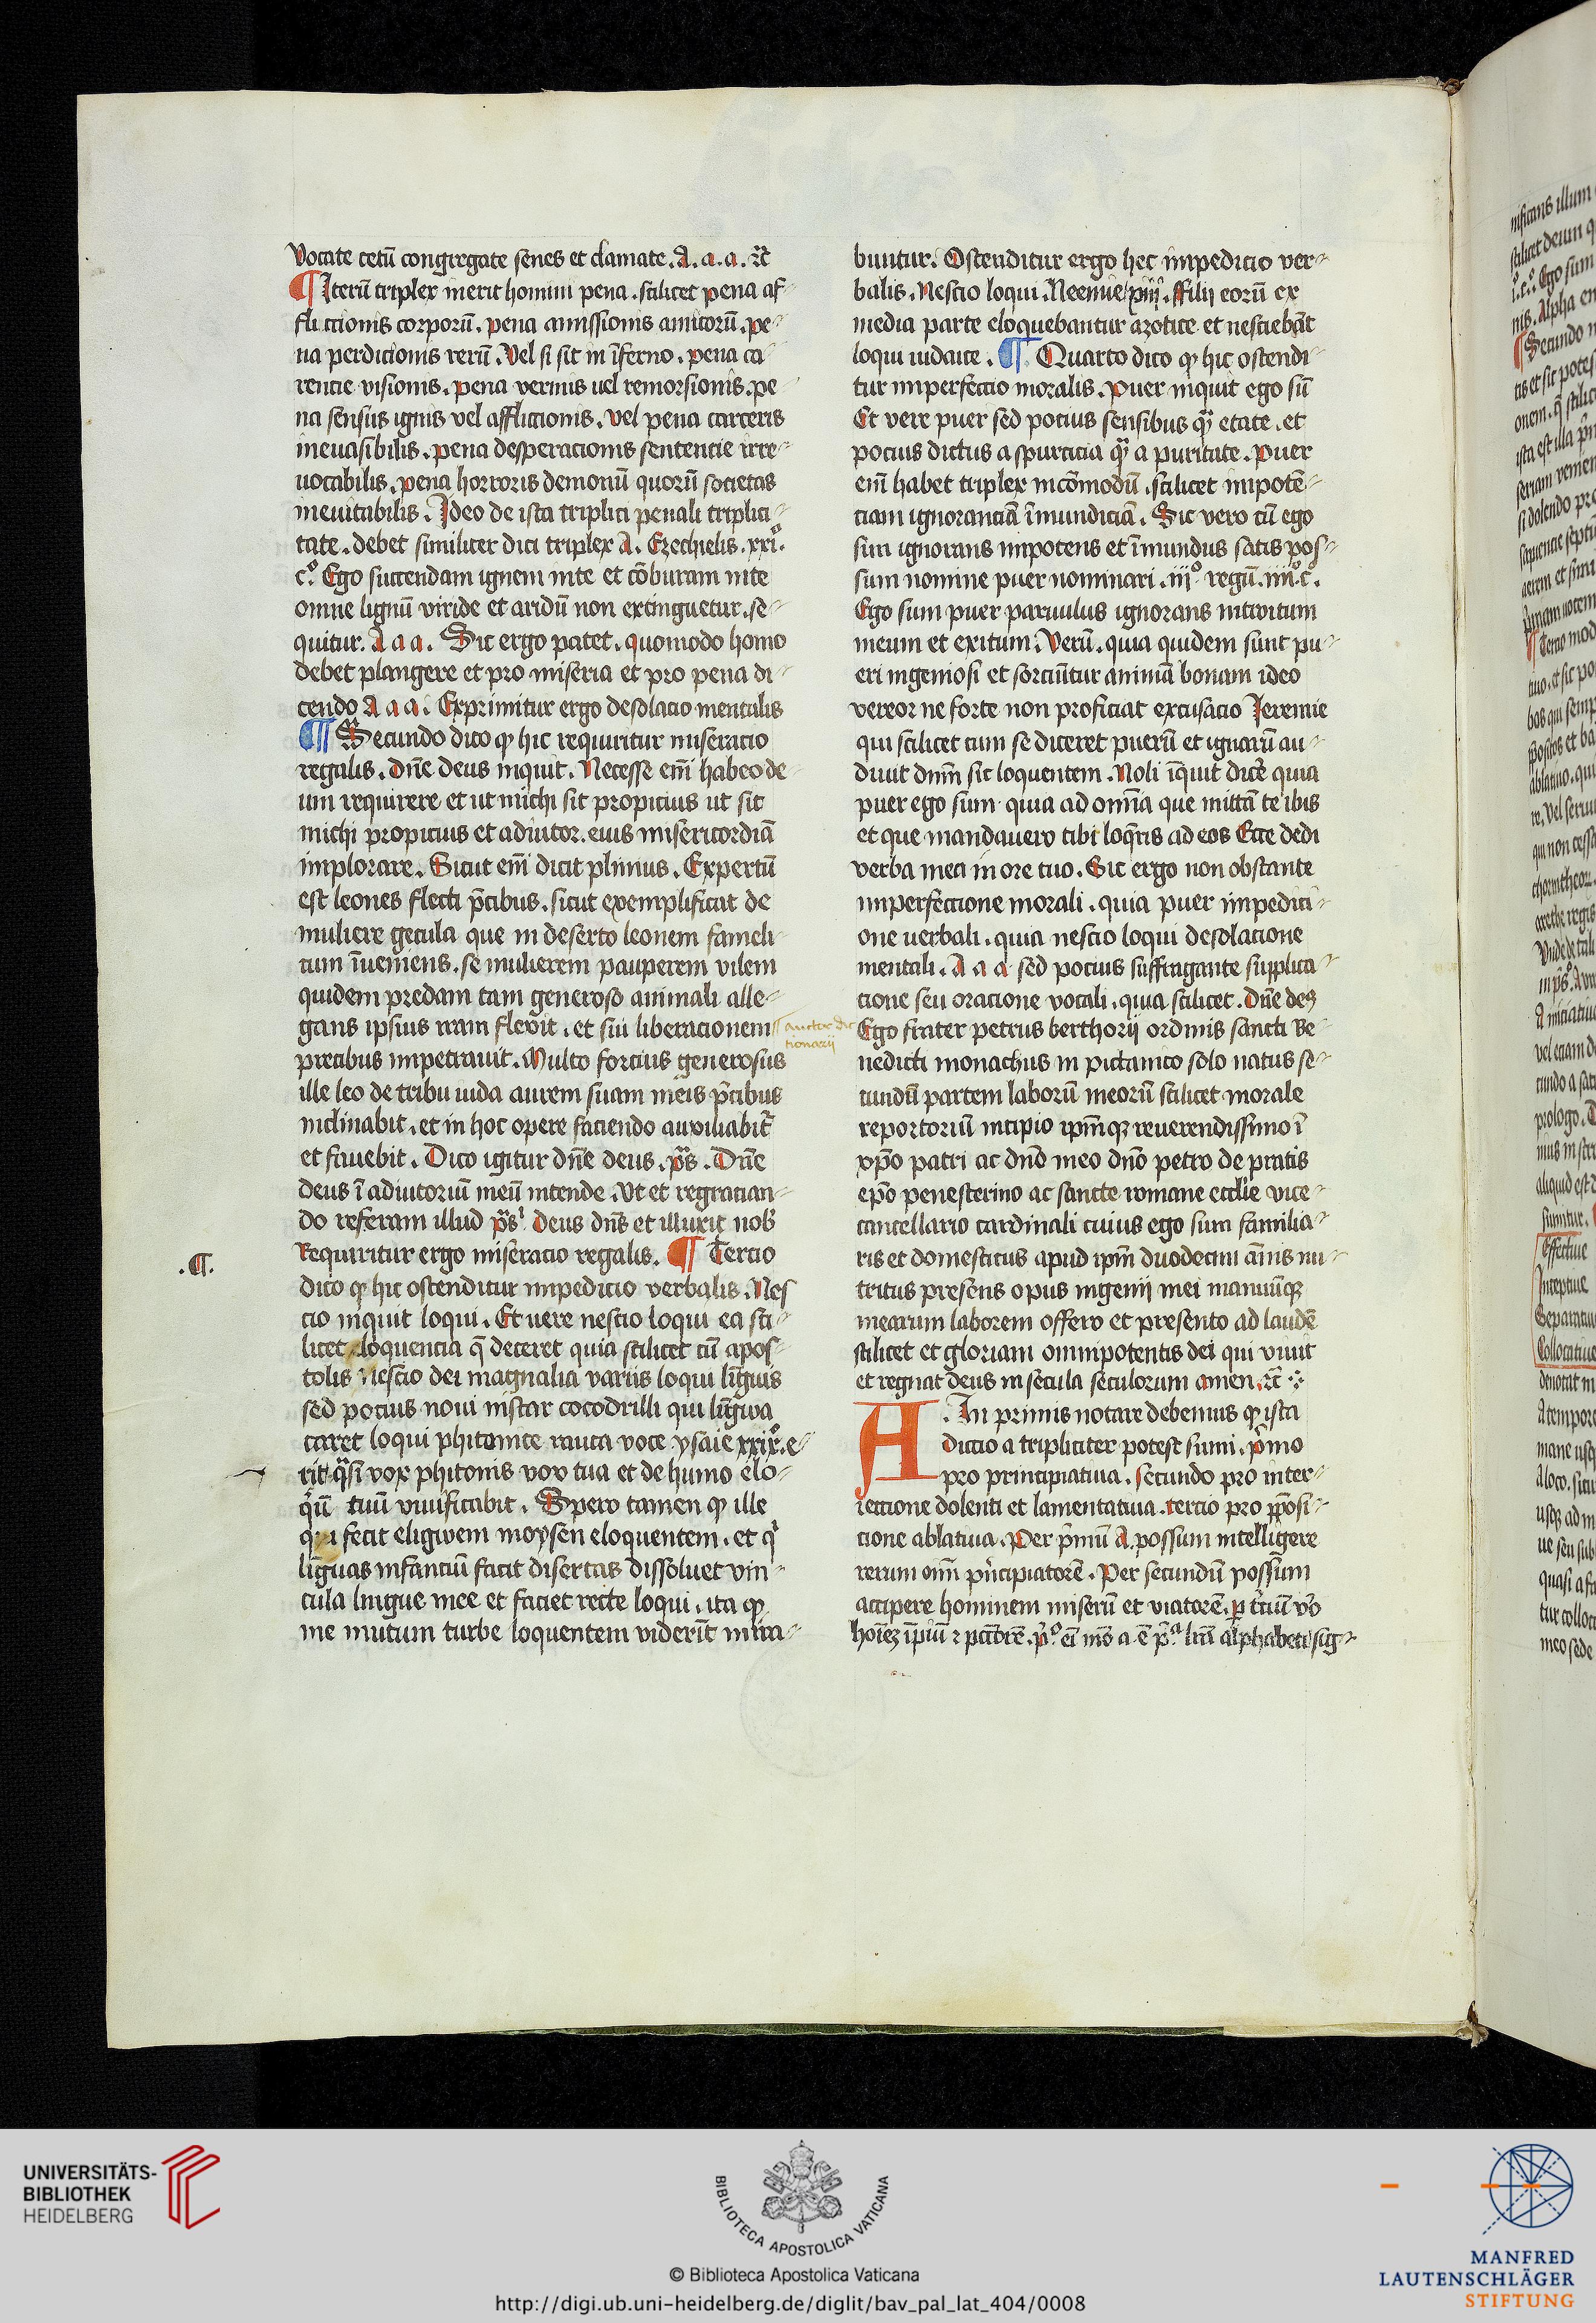 vocate cetū congregate senes et clamate. A. a. a. ⁊c̄
¶ Iterū triplex inerit homini pena. scilicet pena af-
flictionis corporū. pena amissionis amicorū. pe-
na perdicionis rerū. Vel si sit in īferno. pena ca-
rentie visionis. pena vermis uel remorsionis. pe-
na sensus ignis vel afflictionis. vel pena carceris
ineuasibilis. pena desperacionis sententie irre-
uocabilis. pena horroris demonū quorū societas
ineuitabilis. Ideo de ista triplici penali triplici-
tate. debet similiter dici triplex A. Ezechielis. xxi.
c.º Ego succendam ignem inte et cōburam inte
omne lignū viride et aridū non extinguetur. se-
quitur. A a a. Sic ergo patet. quomodo homo
debet plangere et pro miseria et pro pena di-
cendo A a a. Exprimitur ergo desolacio mentalis
¶ Secundo dico ꝙ hic requiritur miseracio
regalis. Dn̄e deus inquit. Necesse em̄ habeo de-
um requirere et ut michi sit propicius ut sit
michi propicius et adiutor. eius misericordiā
implorare. Sicut em̄ dicit plinius. Expertū
est leones flecti p̄cibus. sicut exemplificat de
muliere getula que in deserto leonem fameli-
cum īueniens. se mulierem pauperem vilem
quidem predam tam generoso animali alle-
gans ipsius iram flexit. et sui liberacionem
precibus impetrauit. Multo forcius generosus
ille leo de tribu iuda aurem suam meis p̄cibus
inclinabit. et in hoc opere faciendo auxiliabit᷑
et fauebit. Dico igitur dn̄e deus. p̄s. Dn̄e
deus ī adiutoriū meū intende. Ut et regracian-
do referam illud p̄s. Deus dn̄s et illuxit nob̄
Requiritur ergo miseracio regalis. ¶ Tercio
.¶.
dico ꝙ hic ostenditur impedicio verbalis. Nes
cio inquit loqui. Et uere nescio loqui ea sci-
licet eloquencia q̄ deceret quia scilicet cū apos-
tolis nescio dei magnalia variis loqui līguis
sed pocius noui instar cocodrilli qui līgwa
caret loqui phitonice rauca voce ysaie xxix.º e-
rit q̄si vox phitonis vox tua et de humo elo-
q̄ū tuū viuificabit. Spero tamen ꝙ ille
qui fecit eligwem moysen eloquentem. et qͥ
līguas infanciū facit disertas dissoluet vin-
cula lingue mee et faciet recte loqui. ita ꝙ
me mutum turbe loquentem viderīt mira-
auctor dic
tionarij
buntur. Ostenditur ergo hec impedicio ver-
balis. Nescio loqui. Neemie xiij. ffilij eorū ex
media parte eloquebantur azotice et nesciebāt
loqui iudaice. ¶ Quarto dico ꝙ hic ostendi-
tur imperfectio moralis. Puer inquit ego sū
Et vere puer sed pocius sensibus qᷓ etate. et
pocius dictus a spurcicia qᷓ a puritate. Puer
em̄ habet triplex incōmodū. scilicet impotē-
ciam ignoranciā īmundiciā. Sic vero cū ego
sim ignorans impotens et īmundus satis pos-
sum nomine puer nominari. iijº regū. iij.º c.
Ego sum puer paruulus ignorans introitum
meum et exitum. Verū. quia quidem sunt pu-
eri ingeniosi et sorciūtur animā bonam ideo
vereor ne forte non proficiat excusacio Ieremie
qui scilicet cum se diceret puerū et ignarū au-
diuit dnm̄ sic loquentem. Noli īquit dicē quia
puer ego sum quia ad omīa que mittā te ibis
et que mandauero tibi loq̄ris ad eos Ecce dedi
verba mea in ore tuo. Sic ergo non obstante
imperfectione morali. quia puer impedici-
one uerbali. quia nescio loqui desolacione
mentali. A a a sed pocius suffragante supplica-
cione seu oracione vocali. quia scilicet. Dn̄e deꝰ
Ego frater petrus berthorij ordinis sancti Be-
nedicti monachus in pictauico solo natus se-
cundū partem laborū meorū scilicet morale
reportoriū incipio ipm̄qꝫ reuerendissimo ī
xp̄o patri ac dn̄o meo dn̄o petro de pratis
ep̄o penesterino ac sancte romane eccl̄ie vice-
cancellario cardinali cuius ego sum familia-
ris et domesticus apud ipm̄ duodecim ānis nu-
tritus presens opus ingenij mei manuūqꝫ
mearum laborem offero et presento ad laudē
scilicet et gloriam omnipotentis dei qui viuit
et regnat deus in secula seculorum amen. ⁊c̄
A. In primis notare debemus ꝙ ista
dictio a tripliciter potest sumi. p̄mo
pro principiatiua. secundo pro inter-
iectione dolenti et lamentatiua. tercio pro ꝓposi-
cione ablatiua. Per p̄mū A. possum intelligere
rerum oīm pͥncipiatorē. Per secundū possum
accipere hominem miserū et viatorē. ꝑ t̄ciū v̄o
hoīeꝫ īpiū ⁊ pcc̄orē. p̄.º ei mō a ē p̄.ª lr̄a alphabeti sig-
nificans illum
scilicet deum
Ego sum
nis. Alpha
Secundo
UNIVERSITÄTS-
BIBLIOTHEK
HEIDELBERG
BIBLIOTECA APOSTOLICA VATICANA
© Biblioteca Apostolica Vaticana
http://digi.ub.uni-heidelberg.de/diglit/bav_pal_lat_404/0008
MANFRED
LAUTENSCHLÄGER
STIFTUNG